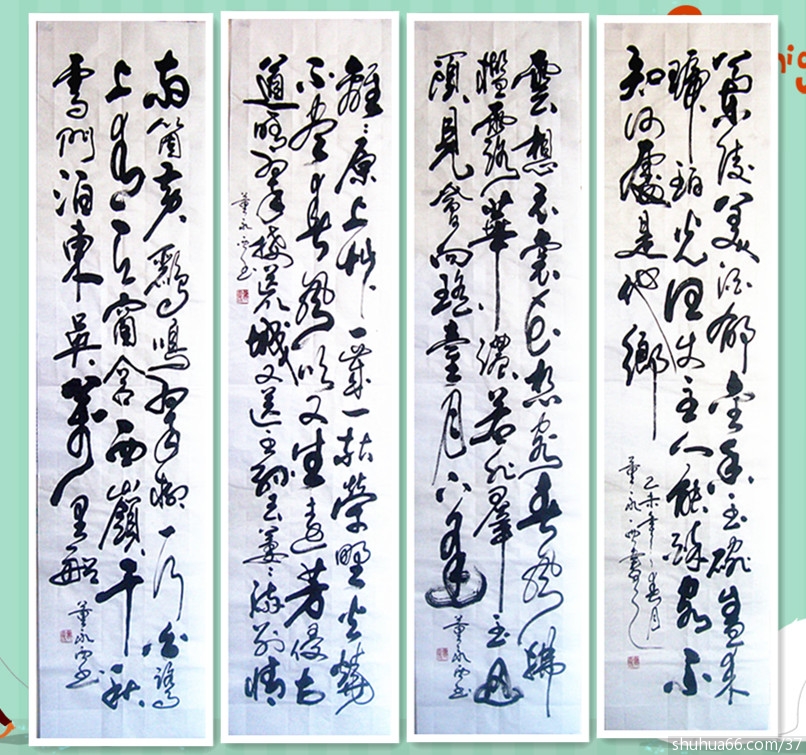 蘭陵美酒郁金香玉碗盛来
琥珀光但使主人能醉客不
知何處是他鄉
乙未年春月
董永書
雲想衣裳花想容春風拂
檻露華濃若非羣玉山
頭見會向瑤臺月下逢
董永書
離々原上草一歲一枯榮野火燒
不盡春風吹又生遠芳侵古
道晴翠接荒城又送王孫去萋々滿別情
董永書
两箇黄鸝鳴翠柳一行白鷺
上青天窗含西嶺千秋
雪門泊東吳萬里船
董永書
shuhua66.com/37